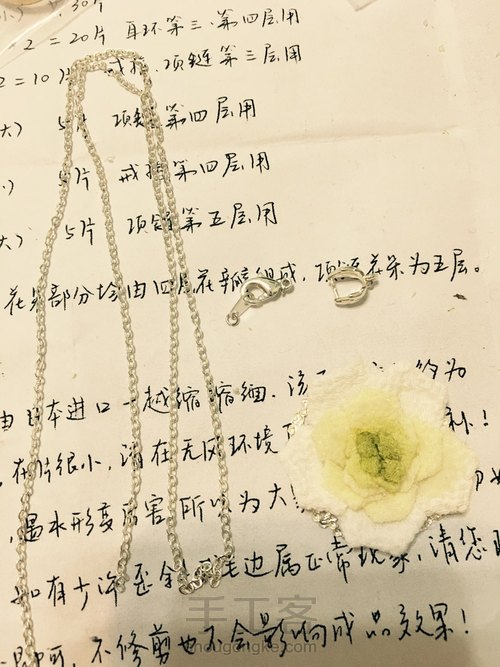 30片
2=20片 耳环第三、第四层用
2=10片 戒指、项链第三层用
大) 5片 项链第四层用
小) 5片 戒指第四层用
大) 5片 项链第五层用
花朵部分均由四层花瓣组成,项链花朵为五层。
由日本进口一越缩缅,
花片很小,请在无风环境 补!
遇水形变厉害,所以为大
如有少许歪 毛边属正常现象,请您
即可,不修剪也不会影响成品效果!
手工客
shougongke.com